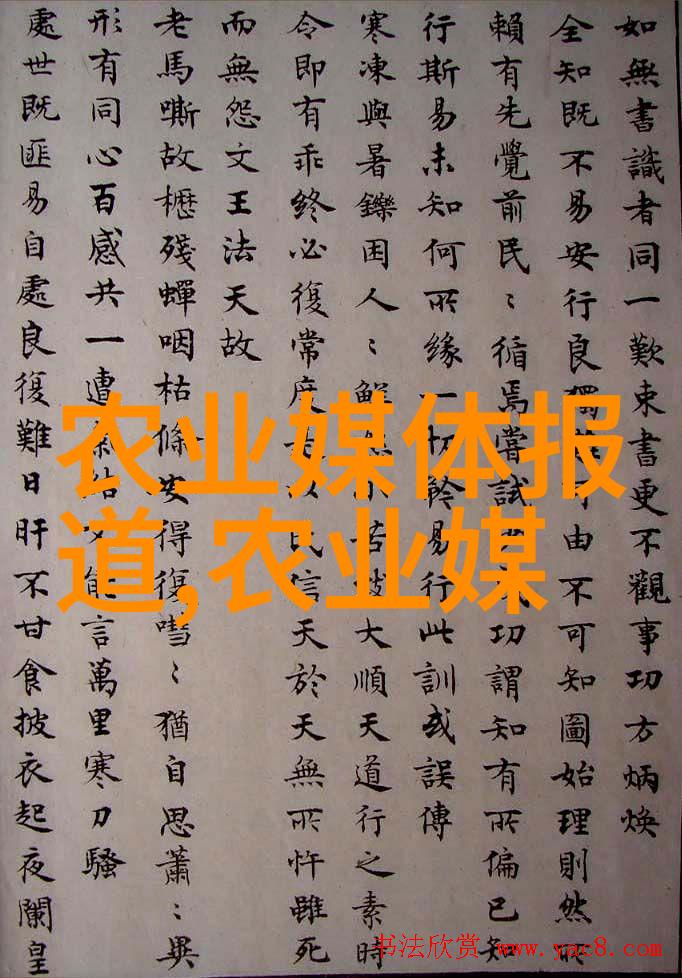 如無書識者同一歎束書更不觀事功方炳煥
全知既不易安行良獨可由不可知圖始理則然所
賴有先覺前民〻循焉嘗試功謂知有所偏已知
行斯易未知何所緣一切易行此訓或誤傳
寒凍與暑鑠困人〻鮮不苦大順天道行之素時
令即有乖終必復常度民信天於天無所忤雖死
而無怨文王法天故
老馬嘶故櫪殘蟬咽枯條安得復〻猶自思蕭〻異
形有同心百感共一遭能言萬里寒刀騷
處世既匪易自處良復難日旰不甘食披衣起夜闌皇
农业媒体报
道,农业媒
书法欣赏 www.yac8.com